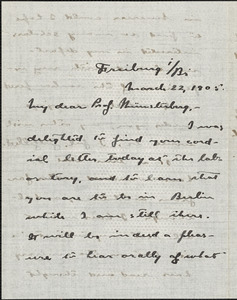 Freiburg i/Br
March 22, 1905
My dear Prof. Münsterberg,-
I was
delighted to find your cord-
ial letter today at the lab-
oratory, and to learn that
you are to be in Berlin
while I am still there.
It will be indeed a plea-
sure to hear orally of what